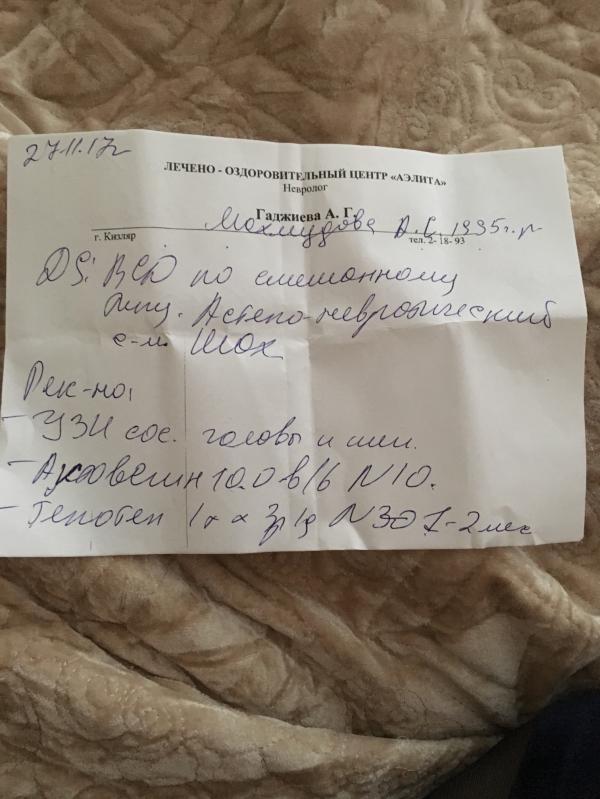 27.11.17г
ЛЕЧЕНО - ОЗДОРОВИТЕЛЬНЫЙ ЦЕНТР «АЭЛИТА»
Невролог
Гаджиева А. Г.
Махмудова А.С. 1995г.р
г. Кизляр тел. 2- 18- 93
DS: ВСД по смешанному
типу. Астено-невротический
с-м. ШОХ
Рек-но:
- УЗИ сос. головы и шеи.
- Актовегин 10.0 в/в N10.
- Тенотен 1т х 3р/д N30 1-2 мес